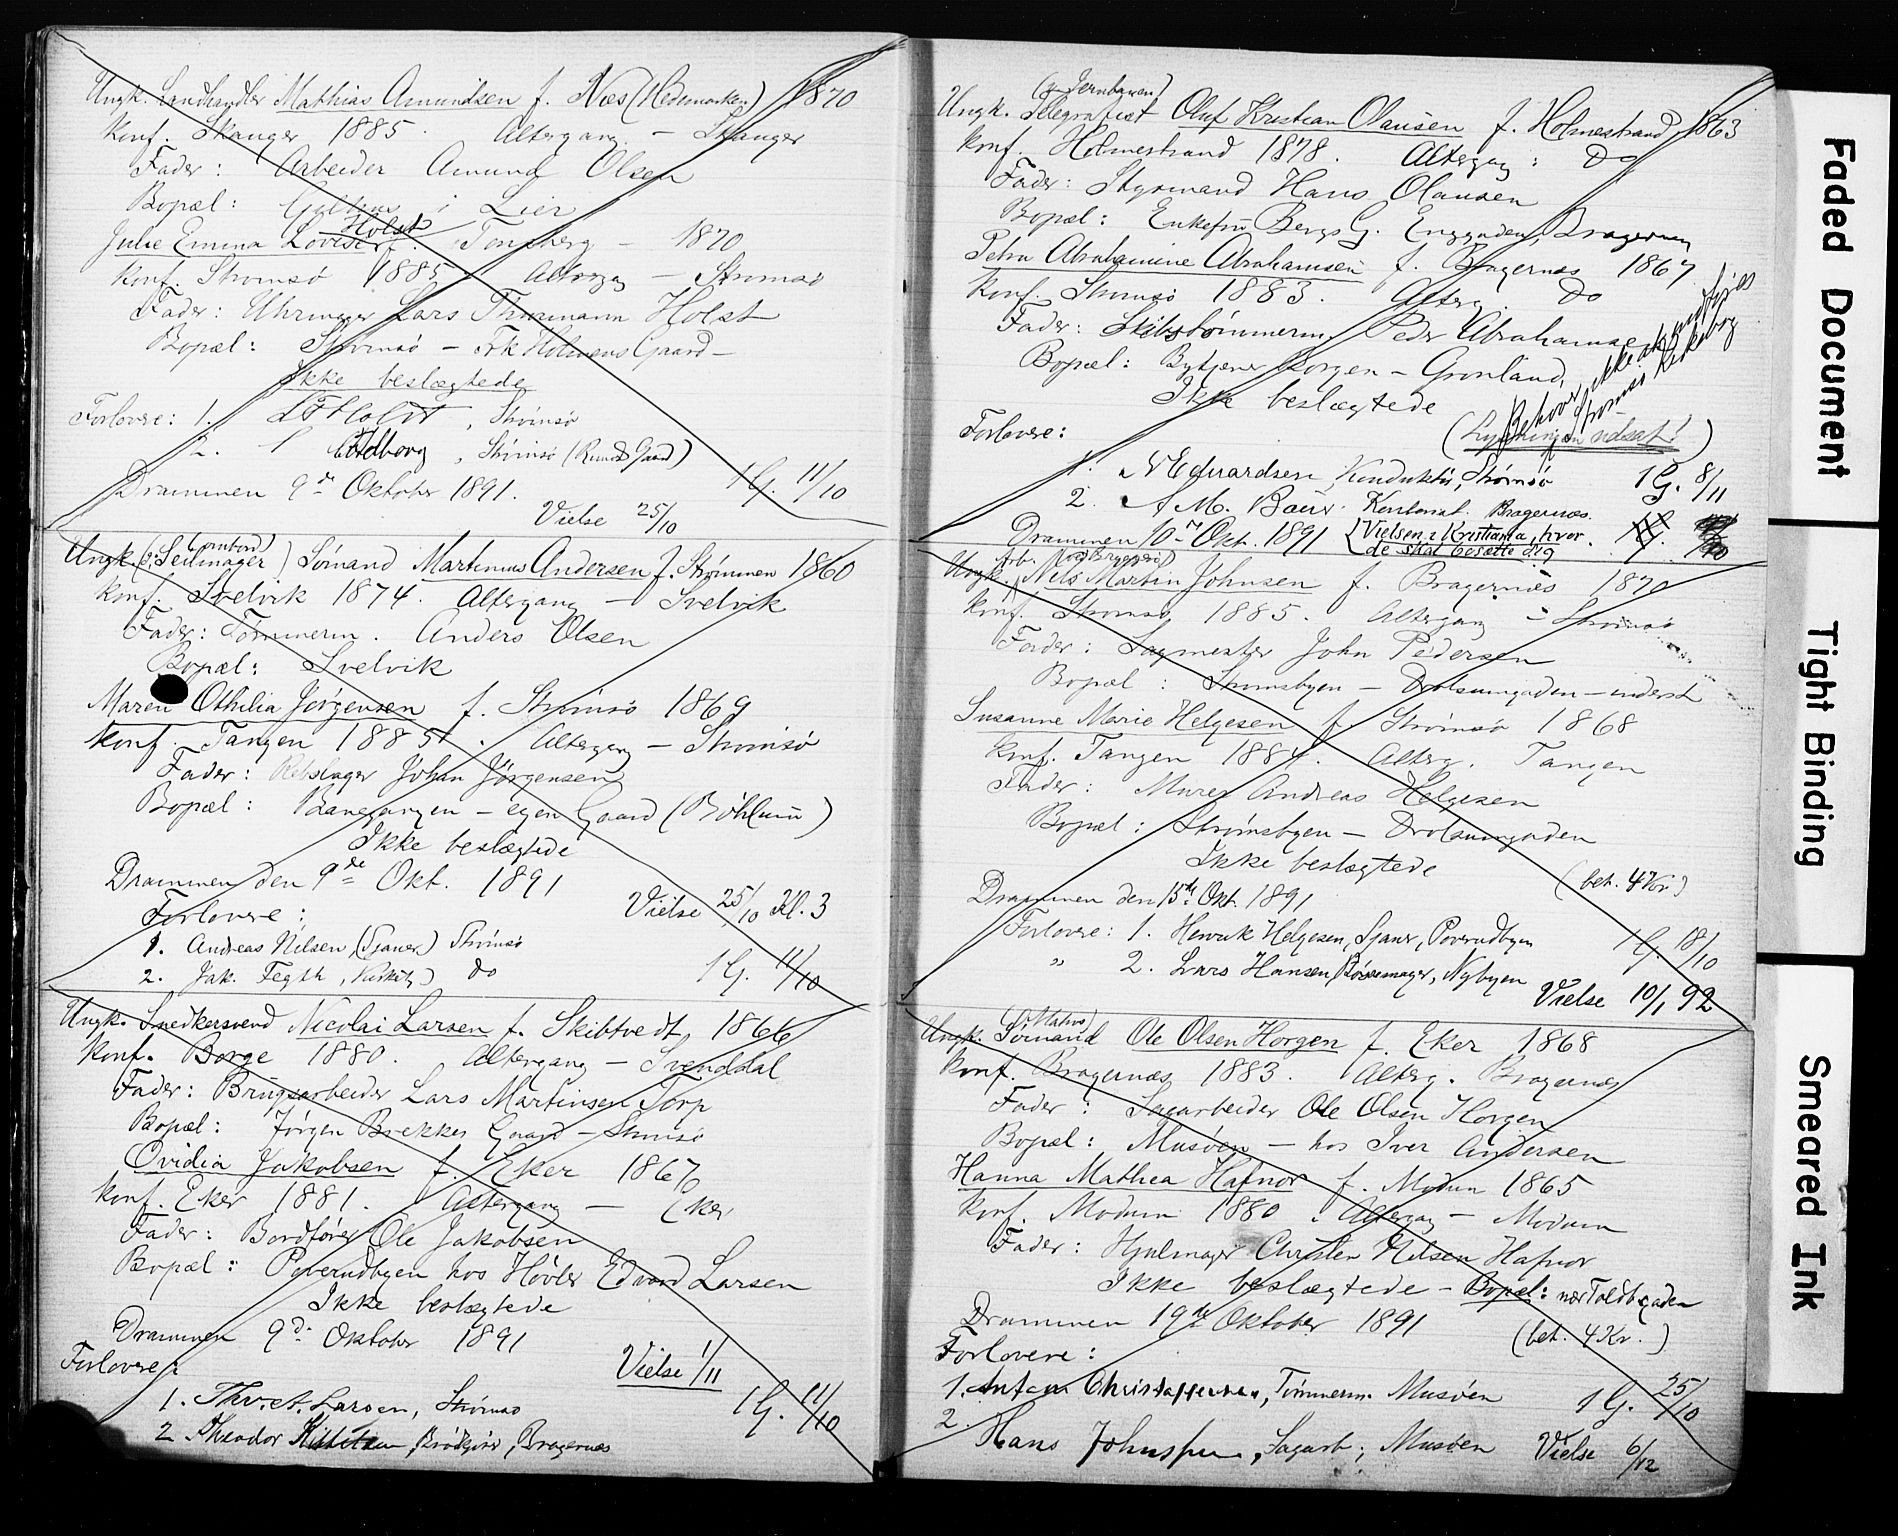 Ungk. Landhandler Mathias Amundsen f. Næs (Hedemarken) 1870
Konf. Skanger 1885. Altergang – Skanger
Fader: Arbeider Amund Olsen
Bopæl: i Lier
Julie Emma Lovise Holst f. Tønsberg – 1870
Konf. Strømsø 1885. Altergg – Strømsø
Fader: Uhrmager Lars Thormann Holst
Bopæl: Strømsø – Frk Holmens Gaard –
Ikke beslægtede
Forlovere: 1. L T Holst, Strømsø
2. Goldborg, Strømsø (Runds Gaard)
Drammen 9de Oktober 1891. 1 G. 11/10
Vielse 25/10
Ungk. (: Seilmager ombord) Sømand Martinius Andersen f. Strømmen 1860
Konf. Svelvik 1874. Altergang – Svelvik
Fader: Tømmerm. Anders Olsen
Bopæl: Svelvik
Maren Othilia Jørgensen f. Strømsø 1869
Konf. Tangen 1885. Altergg – Strømsø
Fader: Rebslager Johan Jørgensen
Bopæl: Banegangen – egen Gaard
Ikke beslægtede
Drammen den 9de Okt. 1891
Vielse 25/10 Kl. 3
Forlovere:
1. Andreas Nilsen (Sjauer) Strømsø
2. Jak. Fegth, do 1 G. 11/10
Ungk. Snedkersvend Nicolai Larsen f. Skibtvedt 1866
Konf. Borge 1880. Altergang – Svenddal
Fader: Brugsarbeider Lars Martinsen Torp
Bopæl: Jørgen Brekkes Gaard – Strømsø
Ovidia Jakobsen f. Eker 1867
Konf. Eker 1881. Altergang – Eker
Fader: Bordfører Ole Jakobsen
Bopæl: Poverudbyen hos Høvler Edvard Larsen
Ikke beslægtede
Drammen 9de Oktober 1891
Vielse 1/11
Forlovere:
1. Thv. A. Larsen, Strømsø 1 G. 11/10
2 Theodor Brødkjører, Bragernæs
(v. Jernbanen)
Ungk. Telegrafist Oluf Kristian Olausen f. Holmestrand 1863
Konf. Holmestrand 1878. Altergg: Do
Fader: Styrmand Hans Olausen
Bopæl: Enkefru Bergs G. Enggaden, Bragernes
Petra Abrahamine Abrahamsen f. Bragernæs 1867
Konf. Strømsø 1883. Alterg. Do
Fader: Skibstømmerm. Peder Abrahamsen
Bopæl: Bytjener Borgen – Grønland.
Ikke beslægtede
Behøver ikke at
Strømsø Kirkeborg
Forlovere: (Lysningen udsat!)
1. N Edvardsen, Konduktør, Strømsø 1 G. 8/11
2. A M. Bauer Kontorist. Bragernæs.
Drammen 10de Okt. 1891 [Vielsen i Kristiania, hvor
de skal bosætte dig
Ungk. Arb. Nils Martin Johnsen f. Bragernæs 1870
Konf. Strømsø 1885. Altergang – Strømsø
Fader: Sagmester John Pedersen
Bopæl: Strømsbyen – Drolsumgaden – inderst
Susanne Marie Helgesen f. Strømsø 1868
Konf. Tangen 1884. Alterg. Tangen
Fader: Murer Andreas Helgesen
Bopæl: Strømsbyen – Drolsumgaden
Ikke beslægtede
(bet. 4 Kr)
Drammen den 15de Okt. 1891
Forlovere: 1. Henrik Helgesen, Sjauer, Poverudbyen 1 G. 18/10
" 2. Lars Hansen, Bøssemager, Nybyen
Vielse 10/1 92
Ungk. Sømand Ole Olsen Horgen f. Eker 1868
Konf. Bragernæs 1883. Alterg. Bragernæs
Fader: Sagarbeider Ole Olsen Horgen
Bopæl: Musøen – hos Iver Andersen
Hanna Mathea Hafnor f. Modum 1865
Konf. Modum 1880. Altergag – Modum
Fader: Hjulmager Christen Nilsen Hafnor
Ikke beslægtede – Bopæl: nær Toldbgaden
Drammen 19de Oktober 1891 (bet. 4 Kr.)
Forlovere:
1. Anton Christoffersen, Tømmerm. Musøen 1 G. 25/10
2. Hans Johnsen, Sagarb; Musøen Vielse 6/12
Faded Document
Tight Binding
Smeared Ink